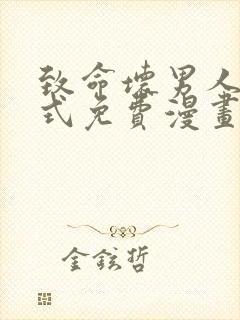 致命壞男人
式免費漫畫
金鉉哲